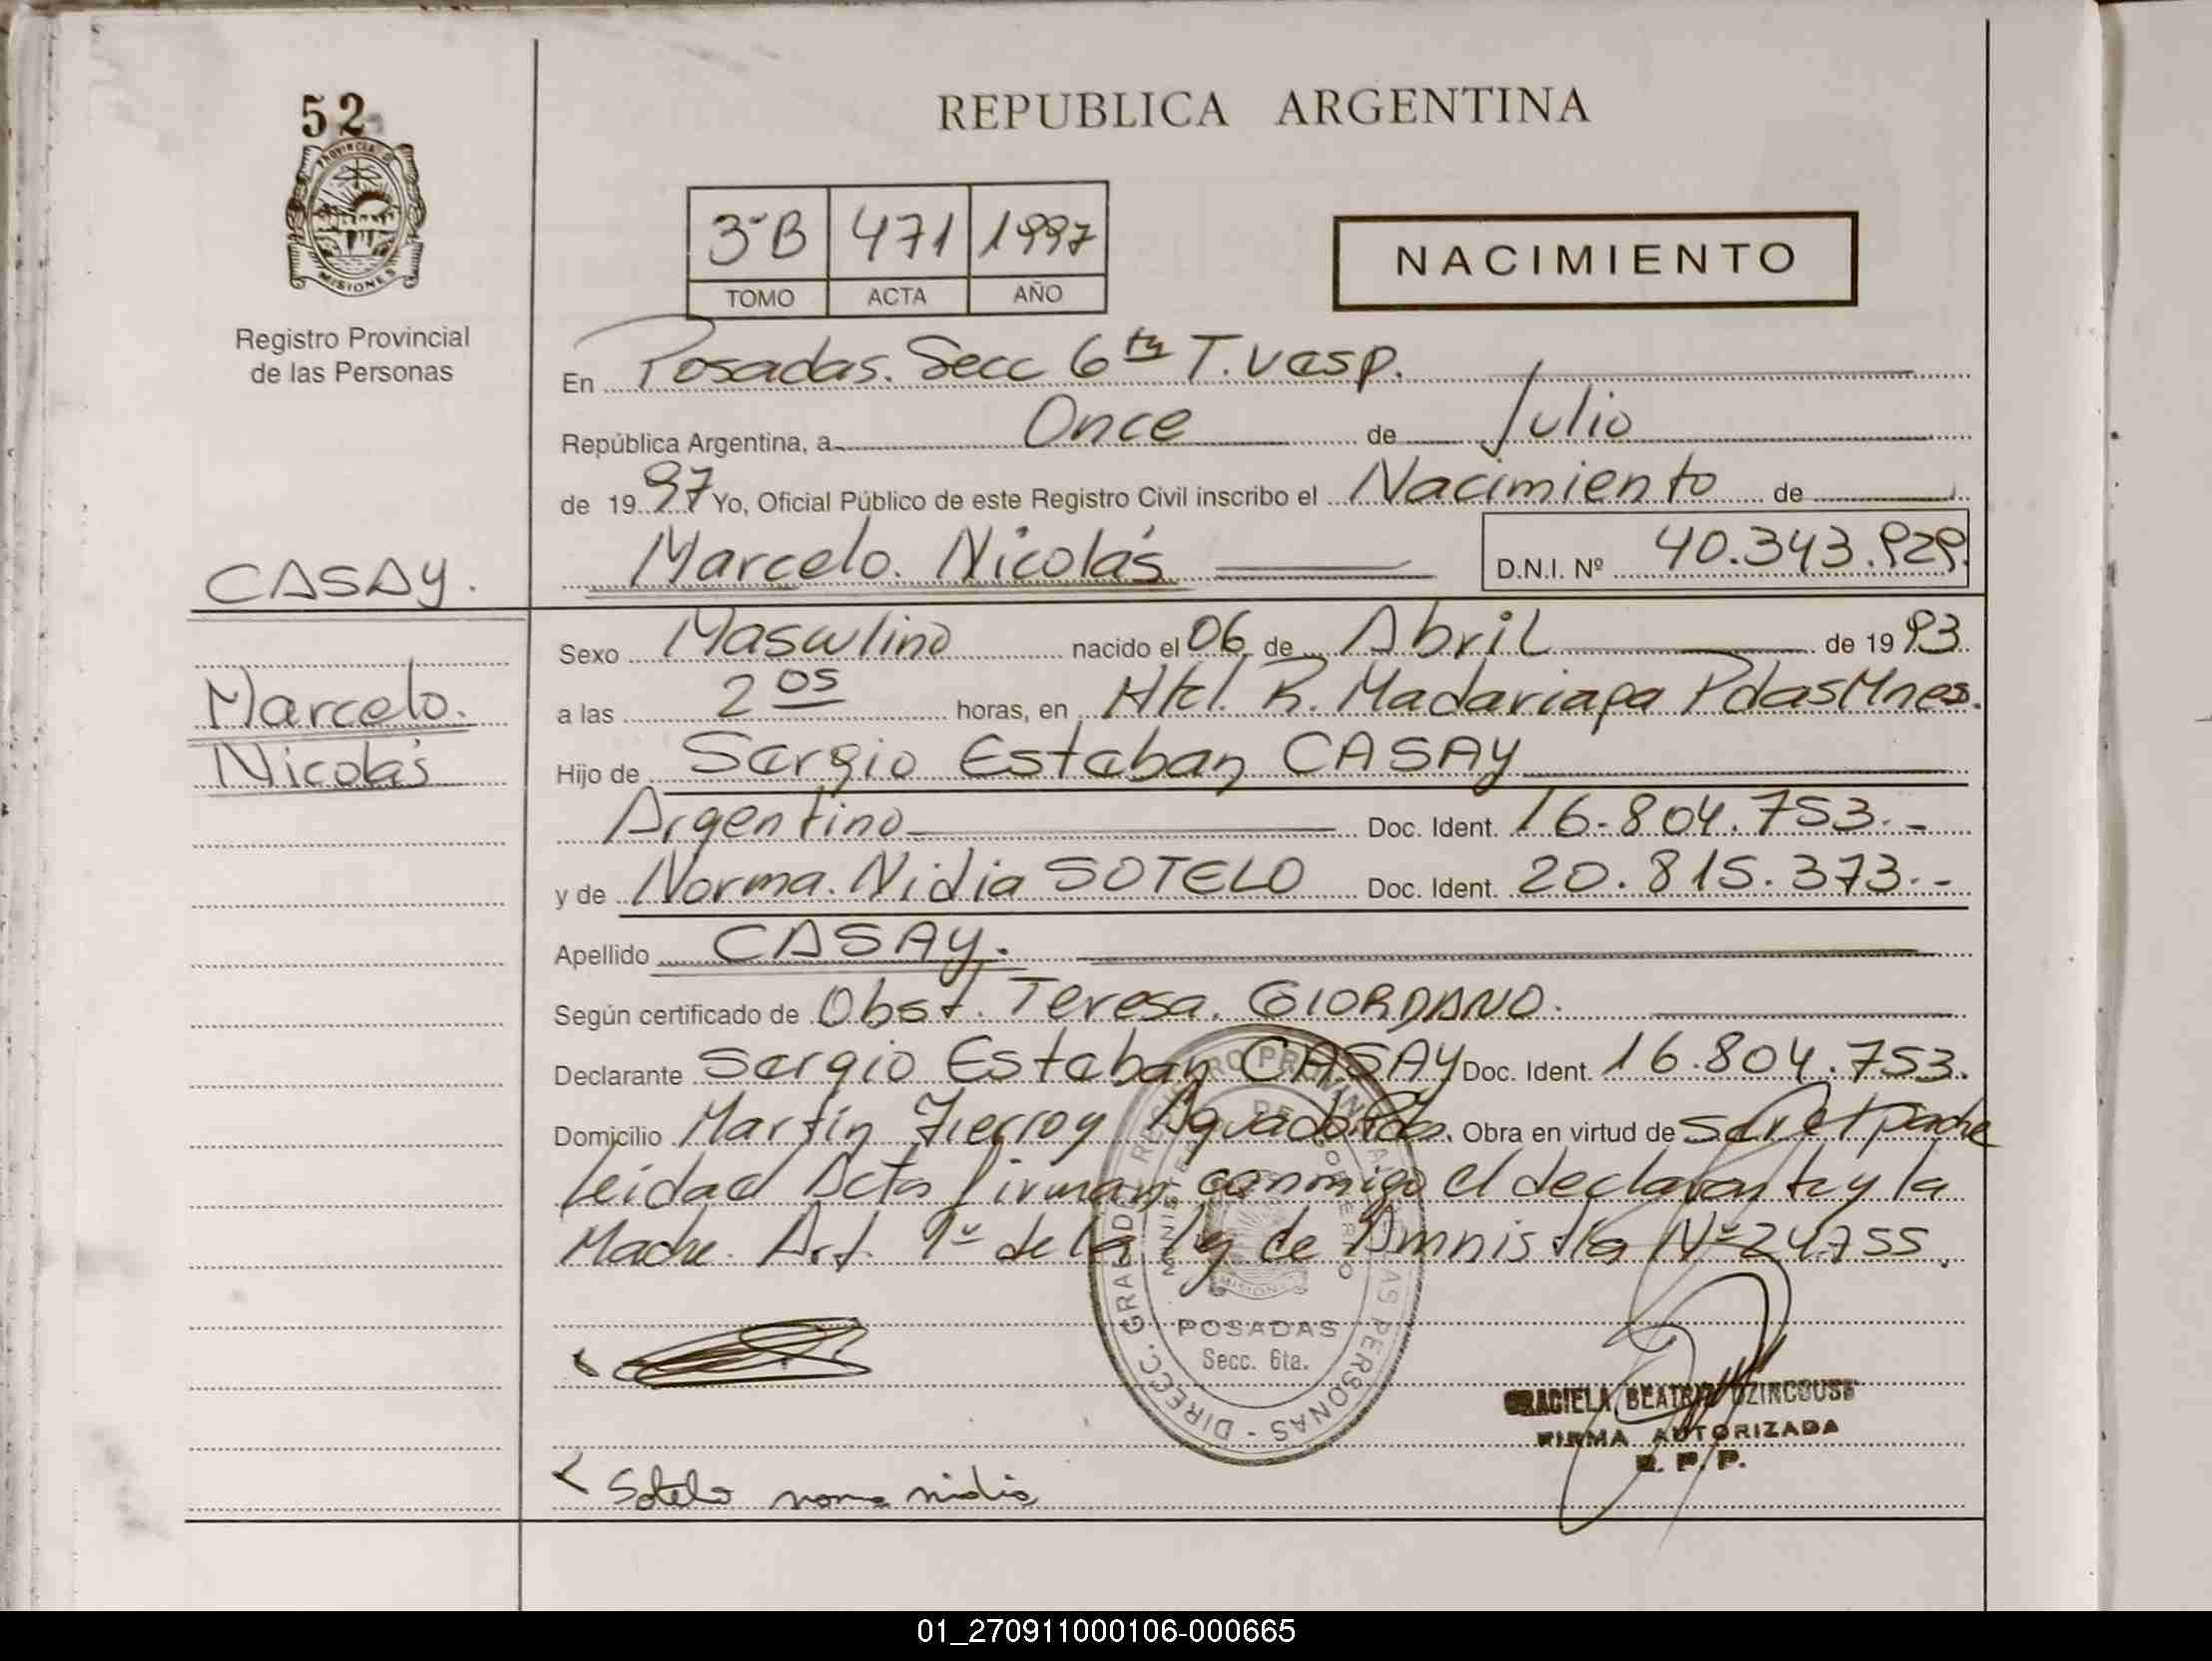 52
PROVINCIA DE
MISIONES
Registro Provincial
de las Personas
CASAY.
Marcelo.
Nicolás
REPUBLICA ARGENTINA
3ºB 471 1997
TOMO ACTA AÑO
NACIMIENTO
En Posadas. Secc 6ta T. Vesp.
República Argentina, a Once de Julio
de 1997 Yo, Oficial Público de este Registro Civil inscribo el Nacimiento de
Marcelo. Nicolás D.N.I. Nº 40.343.929.
Sexo Masculino nacido el 06 de Abril de 1993.
a las 2 05 horas, en Htal. R. Madariaga Pdas Mnes.
Hijo de Sergio Esteban CASAY
Argentino Doc. Ident. 16.804.753.-
y de Norma. Nidia SOTELO Doc. Ident. 20.815.373.-
Apellido CASAY.
Según certificado de Obst. Teresa. GIORDANO.
Declarante Sergio Esteban CASAY Doc. Ident. 16.804.753.
Domicilio Martín Fierro y Aguado Pdas. Obra en virtud de ser el padre
Leida el Acta firman conmigo el declarante y la
Madre. Art. 1º de la Ley de Amnistía Nº 24755.
DIREC. GRAL. DE REGISTRO PROVINCIAL DE LAS PERSONAS
MINISTERIO DE GOBIERNO
MISIONES
POSADAS
Secc. 6ta.
GRACIELA BEATRIZ
FIRMA AUTORIZADA
R. P. P.
Sotelo norma nidia
01_270911000106-000665